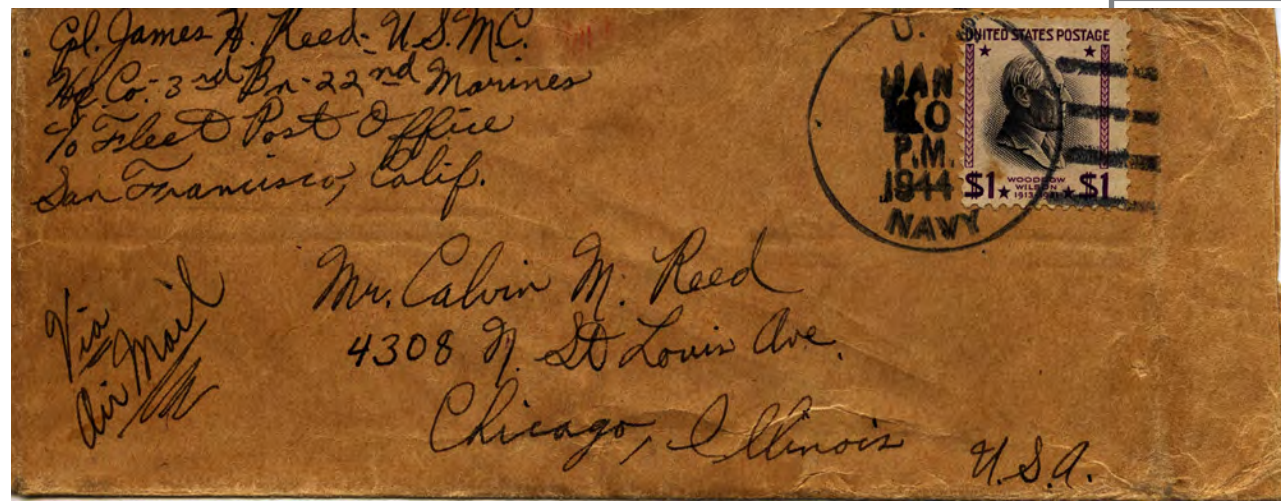 Cpl. James H. Reed - U.S.M.C.
Hq. Co. - 3rd Bn - 22nd Marines
% Fleet Post Office
San Francisco, Calif.
U. S.
JAN
P.M.
1944
NAVY
UNITED STATES POSTAGE
$1 WOODROW WILSON $1
Via
Air Mail
Mr. Calvin M. Reed
4308 N. St Louis Ave.
Chicago, Illinois
U.S.A.